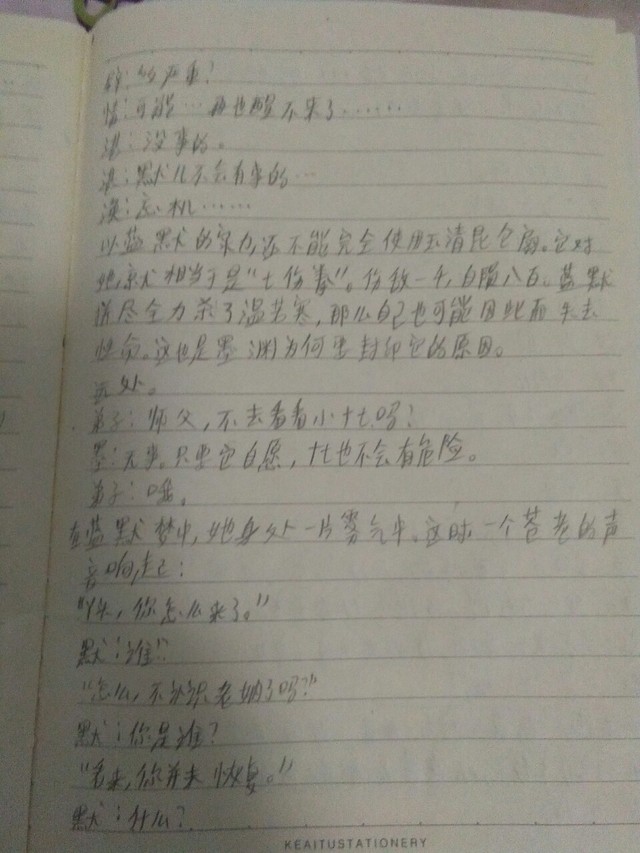 辞:多严重?
惜:可能…再也醒不来了……
湛:没事的。
湛:默儿不会有事的…
涣:忘机……
以蓝默的实力,还不能完全使用玉清昆仑扇。它对
她来说相当于是“七伤拳”。伤敌一千,自损八百。蓝默
拼尽全力杀了温若寒,那么自己也可能因此而失去
性命。这也是墨渊为何要封印它的原因。
远处。
弟子:师父,不去看看小十七吗?
墨:无事。只要它自愿,十七也不会有危险。
弟子:哦。
在蓝默梦中,她身处一片雾气中。这时一个苍老的声
音响起:
“丫头,你怎么来了。”
默:谁?
“怎么,不认识老衲了吗?”
默:你是谁?
“看来,你并未恢复。”
默:什么?
KEAITUSTATIONERY